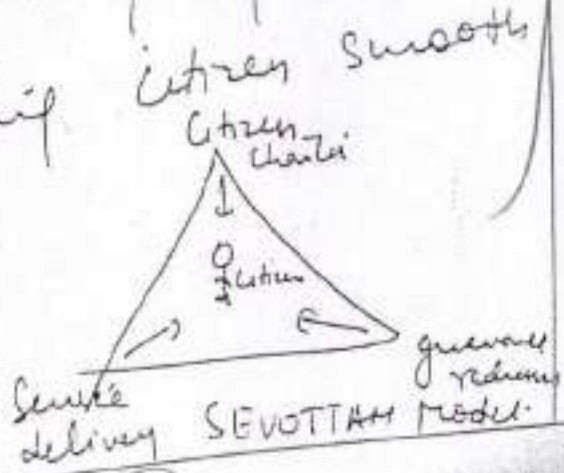 citizen smooth
Citizen
Charter
Citizen
grievance
redress
Service
delivery SEVOTTAM MODEL.